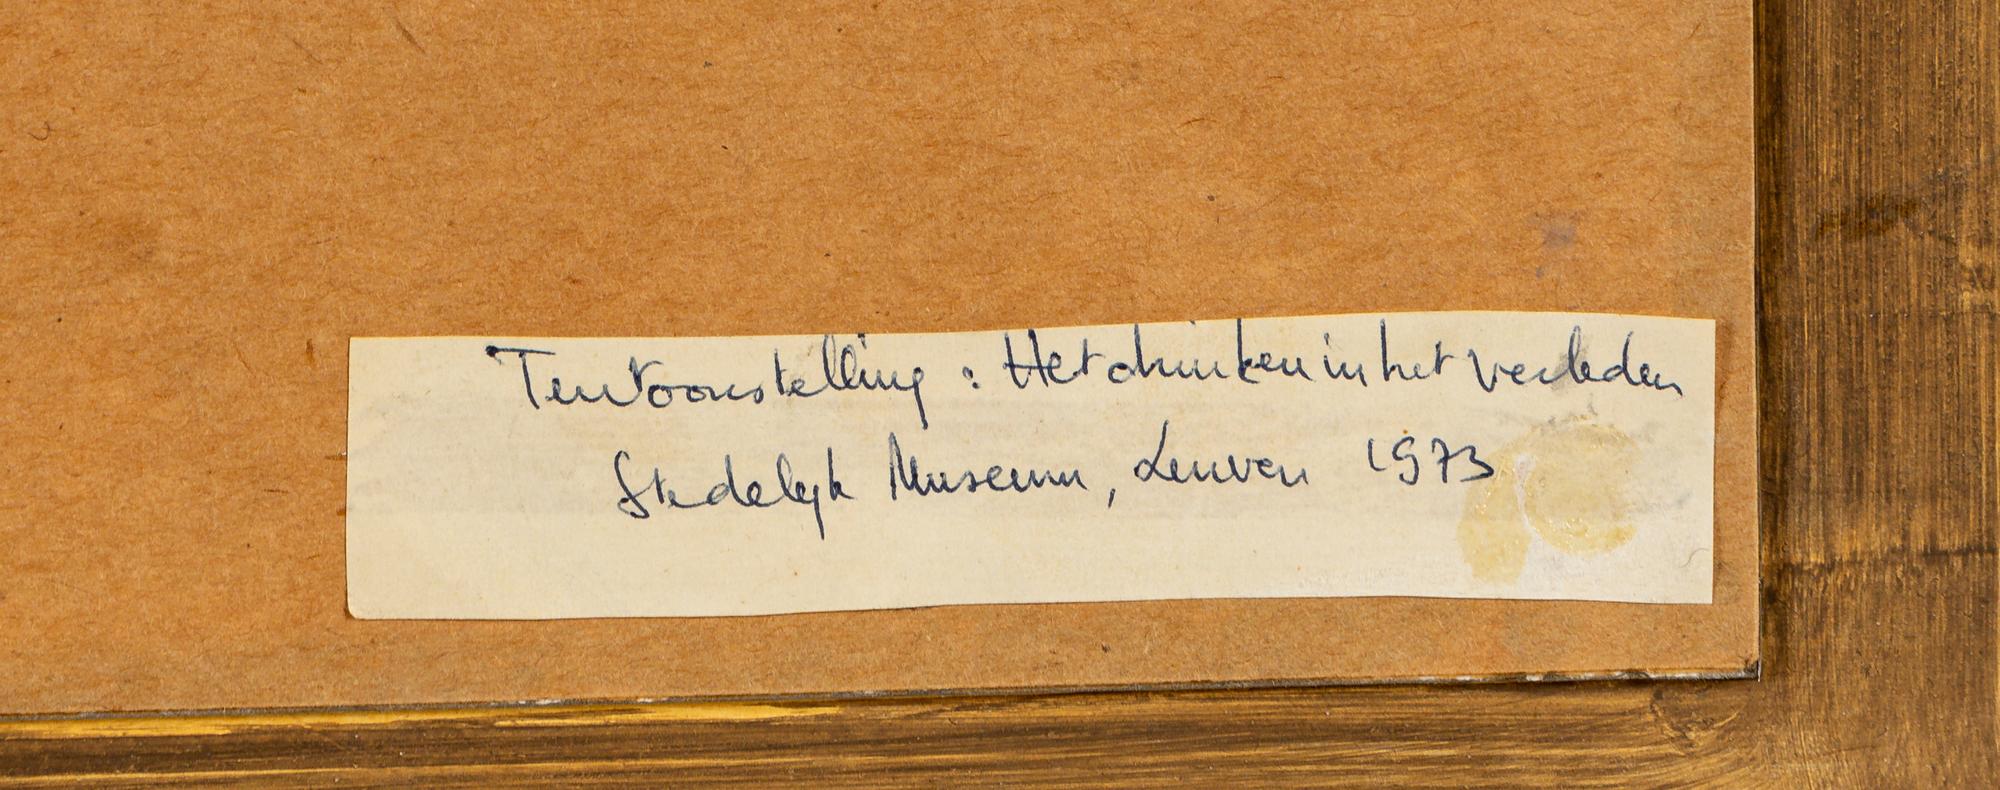 Tentoonstelling : Het drinken in het verleden
Stedelyk Museum, Leuven 1973